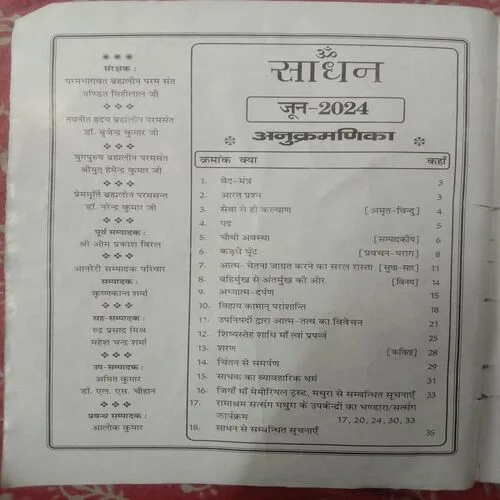 ❋ ❋ ❋
संरक्षक :
परमभागवत ब्रह्मलीन परम संत
पण्डित मिहीलाल जी
❖ ❖ ❖
नवनीत हृदय ब्रह्मलीन परमसंत
डॉ. बृजेन्द्र कुमार जी
❖ ❖ ❖
युगपुरुष ब्रह्मलीन परमसंत
श्रीयुत् हेमेन्द्र कुमार जी
❖ ❖ ❖
प्रेममूर्ति ब्रह्मलीन परमसन्त
डॉ. नरेन्द्र कुमार जी
❖ ❖ ❖
पूर्व सम्पादक :
श्री ओम प्रकाश विरल
❖ ❖ ❖
आनरेरी सम्पादक परिवार
सम्पादक :
कृष्णकान्त शर्मा
❖ ❖ ❖
सह-सम्पादक :
रुद्र प्रसाद मिश्र
महेश चन्द्र शर्मा
❖ ❖ ❖
उप-सम्पादक :
अमित कुमार
डॉ. एल. एस. चौहान
❖ ❖ ❖
प्रबन्ध सम्पादक :
आलोक कुमार
ॐ
साधन
जून-2024
अनुक्रमणिका
क्रमांक क्या कहाँ
1. वेद-मंत्र 3
2. आरत प्रश्न 3
3. सेवा से हो कल्याण [अमृत-विन्दु] 4
4. पद 5
5. चौथी अवस्था [सम्पादकीय] 6
6. कड़वे घूँट [प्रवचन-पराग] 8
7. आत्म-चेतना जाग्रत करने का सरल रास्ता [सुधा-सार] 11
8. बहिर्मुख से अंतर्मुख की ओर [विनय] 14
9. अध्यात्म-दर्पण 15
10. विहाय कामान् पराशान्ति 18
11. उपनिषदों द्वारा आत्म-तत्व का विवेचन 21
12. शिष्यस्तेहं शाधि माँ त्वां प्रपन्नं 25
13. शरण [कविता] 28
14. चिंतन से समर्पण 29
15. साधक का व्यावहारिक धर्म 31
16. जियाँ माँ मेमोरियल ट्रस्ट, मथुरा से सम्बन्धित सूचनाएँ 33
17. रामाश्रम सत्संग मथुरा के उपकेन्दों का भण्डारा/सत्संग
कार्यक्रम 17, 20, 24, 30, 33
18. साधन से सम्बन्धित सूचनाएँ 35